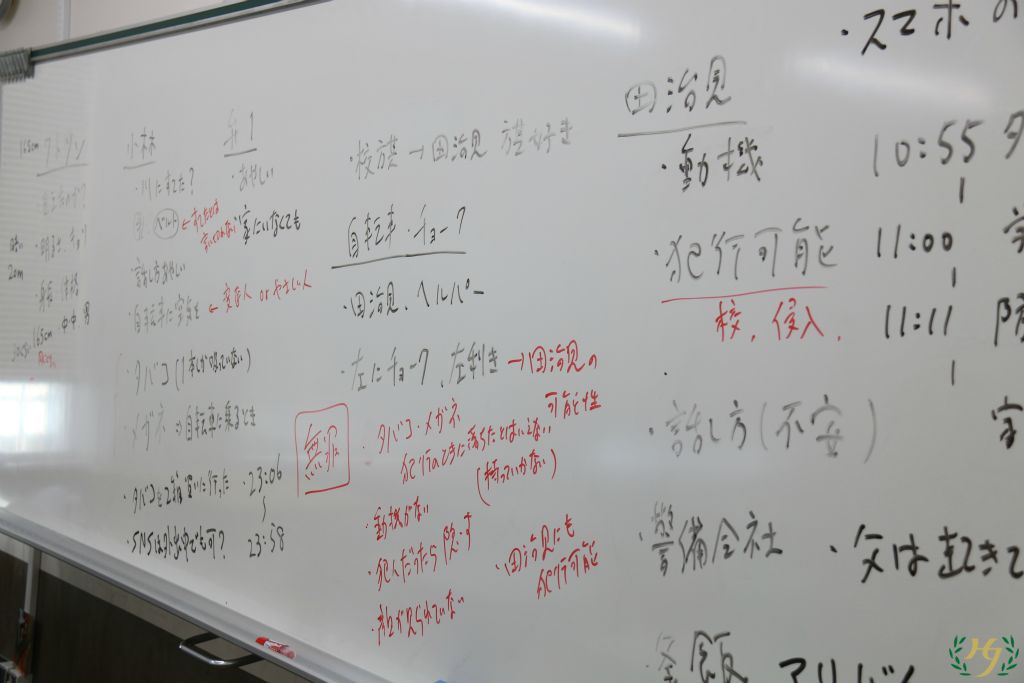 165cm
小林
・川にすてた？
ベルト ← すてたとは
・話し方あやしい
・自転車に空気を ← 変な人 or やさしい人
・タバコ (1本しか吸っていない)
・メガネ ⇒ 自転車に乗るとき
・タバコを2箱買いに行った ・23:06
・SNSは外出中でも可？ 23:58
弟1
・あやしい
家にいなくても
・明るさ、キョリ
20m
身長 体格
165cm 中 中 男
→ 田治見
自転車・チョーク
・田治見、ヘルパー
・左にチョーク、左利き → 田治見の
可能性
無罪
・タバコ・メガネ
犯行のときに落ちたとはいえない
(持っていかない)
・動機がない
・犯人だったら隠す
・顔が見られていない
・田治見にも
犯行可能
田治見
・動機
・犯行可能
校、侵入、
・話し方(不安)
・警備会社
釜飯
・スマホの
10:55
11:00
11:11
・父は起きて
アリバイ
HJ